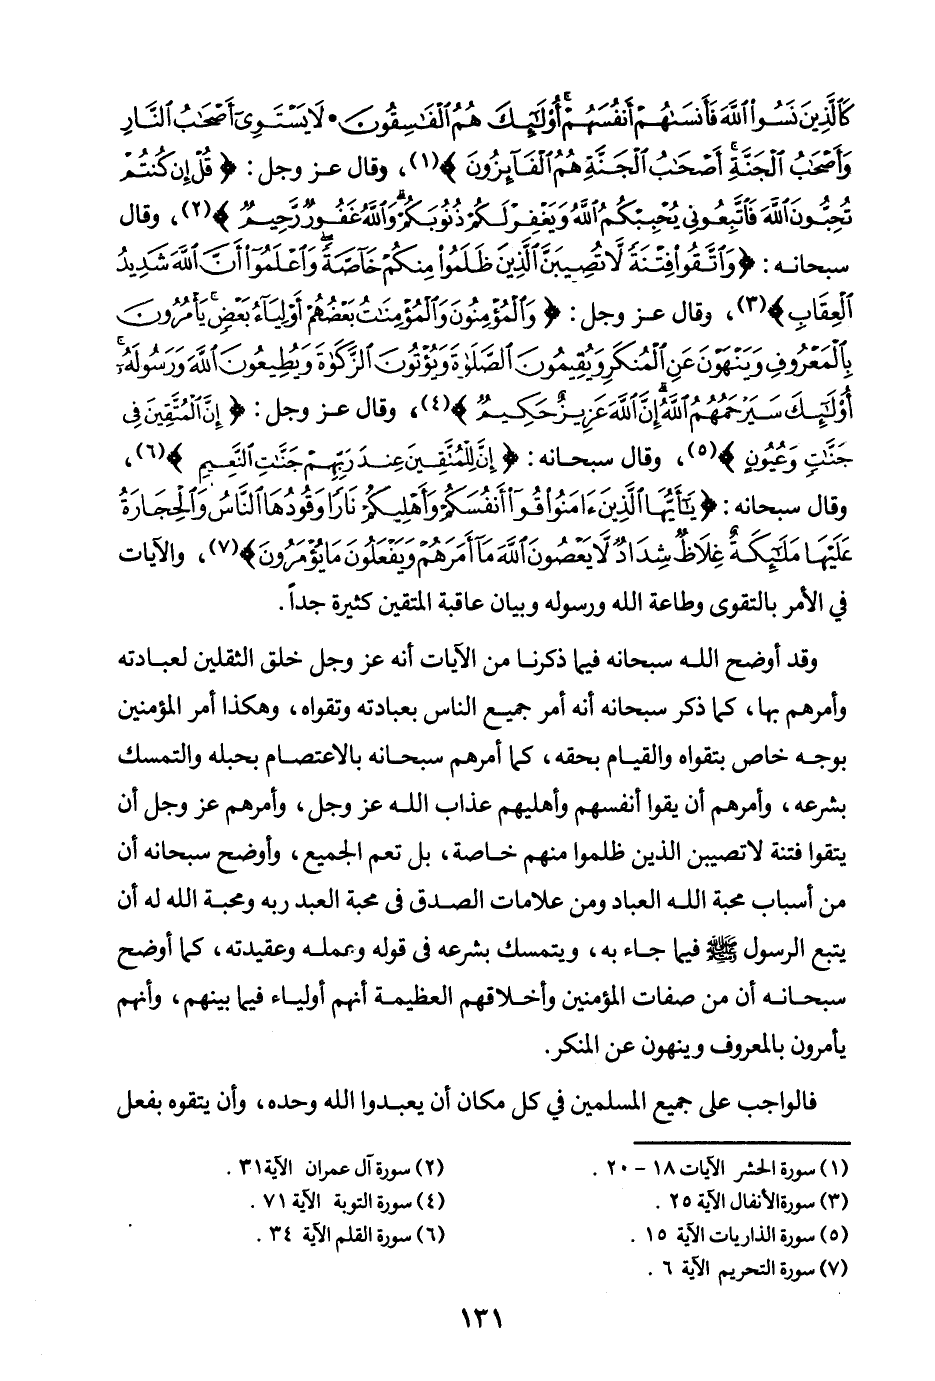 كَالَّذِينَ نَسُوا۟ ٱللَّهَ فَأَنسَىٰهُمْ أَنفُسَهُمْ ۚ أُو۟لَٰٓئِكَ هُمُ ٱلْفَٰسِقُونَ • لَا يَسْتَوِىٓ أَصْحَٰبُ ٱلنَّارِ
وَأَصْحَٰبُ ٱلْجَنَّةِ ۚ أَصْحَٰبُ ٱلْجَنَّةِ هُمُ ٱلْفَآئِزُونَ ﴾(١)، وقال عـز وجل : ﴿ قُلْ إِن كُنتُمْ
تُحِبُّونَ ٱللَّهَ فَٱتَّبِعُونِى يُحْبِبْكُمُ ٱللَّهُ وَيَغْفِرْ لَكُمْ ذُنُوبَكُمْ ۗ وَٱللَّهُ غَفُورٌ رَّحِيمٌ ﴾(٢)، وقال
سبحانـه : ﴿وَٱتَّقُوا۟ فِتْنَةً لَّا تُصِيبَنَّ ٱلَّذِينَ ظَلَمُوا۟ مِنكُمْ خَآصَّةً ۖ وَٱعْلَمُوٓا۟ أَنَّ ٱللَّهَ شَدِيدُ
ٱلْعِقَابِ ﴾(٣)، وقال عـز وجل : ﴿ وَٱلْمُؤْمِنُونَ وَٱلْمُؤْمِنَٰتُ بَعْضُهُمْ أَوْلِيَآءُ بَعْضٍ ۚ يَأْمُرُونَ
بِٱلْمَعْرُوفِ وَيَنْهَوْنَ عَنِ ٱلْمُنكَرِ وَيُقِيمُونَ ٱلصَّلَوٰةَ وَيُؤْتُونَ ٱلزَّكَوٰةَ وَيُطِيعُونَ ٱللَّهَ وَرَسُولَهُۥٓ ۚ
أُو۟لَٰٓئِكَ سَيَرْحَمُهُمُ ٱللَّهُ ۗ إِنَّ ٱللَّهَ عَزِيزٌ حَكِيمٌ ﴾(٤)، وقال عـز وجل : ﴿ إِنَّ ٱلْمُتَّقِينَ فِى
جَنَّٰتٍ وَعُيُونٍ ﴾(٥)، وقال سبحـانه : ﴿ إِنَّ لِلْمُتَّقِينَ عِندَ رَبِّهِمْ جَنَّٰتِ ٱلنَّعِيمِ ﴾(٦)،
وقال سبحانه : ﴿ يَٰٓأَيُّهَا ٱلَّذِينَ ءَامَنُوا۟ قُوٓا۟ أَنفُسَكُمْ وَأَهْلِيكُمْ نَارًا وَقُودُهَا ٱلنَّاسُ وَٱلْحِجَارَةُ
عَلَيْهَا مَلَٰٓئِكَةٌ غِلَاظٌ شِدَادٌ لَّا يَعْصُونَ ٱللَّهَ مَآ أَمَرَهُمْ وَيَفْعَلُونَ مَا يُؤْمَرُونَ ﴾(٧)، والآيات
في الأمر بالتقوى وطاعة الله ورسوله وبيان عاقبة المتقين كثيرة جداً .
وقد أوضح اللـه سبحانه فيما ذكرنـا من الآيات أنه عز وجل خلق الثقلين لعبـادته
وأمرهم بها، كما ذكر سبحانه أنه أمر جميـع الناس بعبادته وتقواه، وهكذا أمر المؤمنين
بوجـه خاص بتقواه والقيـام بحقه، كما أمرهم سبحـانه بالاعتصـام بحبله والتمسك
بشرعه، وأمرهم أن يقوا أنفسهم وأهليهم عذاب اللـه عز وجل، وأمرهم عز وجل أن
يتقوا فتنة لاتصيبن الذين ظلموا منهم خـاصة، بل تعم الجميع، وأوضح سبحانه أن
من أسباب محبة اللـه العباد ومن علامات الصدق فى محبة العبد ربه ومحبـة الله له أن
يتبع الرسول ﷺ فيما جـاء به، ويتمسك بشرعه فى قوله وعملـه وعقيدته، كما أوضح
سبحـانـه أن من صفات المؤمنين وأخـلاقهم العظيمـة أنهم أوليـاء فيما بينهم، وأنهم
يأمرون بالمعروف وينهون عن المنكر.
فالواجب على جميع المسلمين في كل مكان أن يعبـدوا الله وحده، وأن يتقوه بفعل
(١) سورة الحشر الآيات ١٨ - ٢٠ . (٢) سورة آل عمران الآية ٣١ .
(٣) سورة الأنفال الآية ٢٥ . (٤) سورة التوبة الآية ٧١ .
(٥) سورة الذاريات الآية ١٥ . (٦) سورة القلم الآية ٣٤ .
(٧) سورة التحريم الآية ٦ .
١٣١